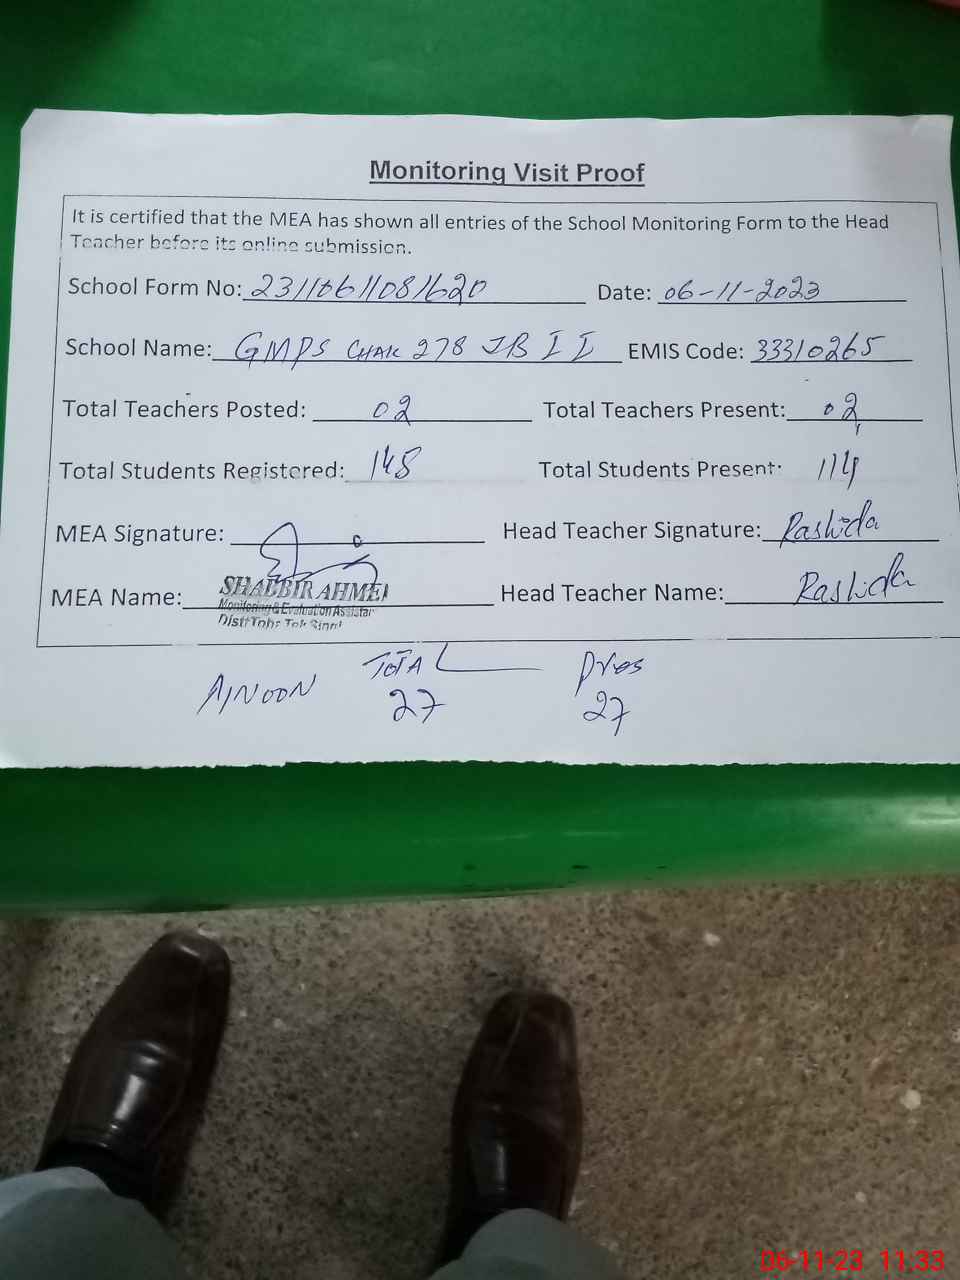 Monitoring Visit Proof
It is certified that the MEA has shown all entries of the School Monitoring Form to the Head
Teacher before its online submission.
School Form No: 23110611081620 Date: 06-11-2023
School Name: GMPS CHAK 278 JB II EMIS Code: 33310265
Total Teachers Posted: 02 Total Teachers Present: 02
Total Students Registered: 148 Total Students Present: 114
MEA Signature: Head Teacher Signature: Rashida
MEA Name: SHABBIR AHMED Head Teacher Name: Rashida
Monitoring & Evaluation Assistant
Distt Toba Tek Singh
TOTAL Pres
27 27
06-11-23 11:33